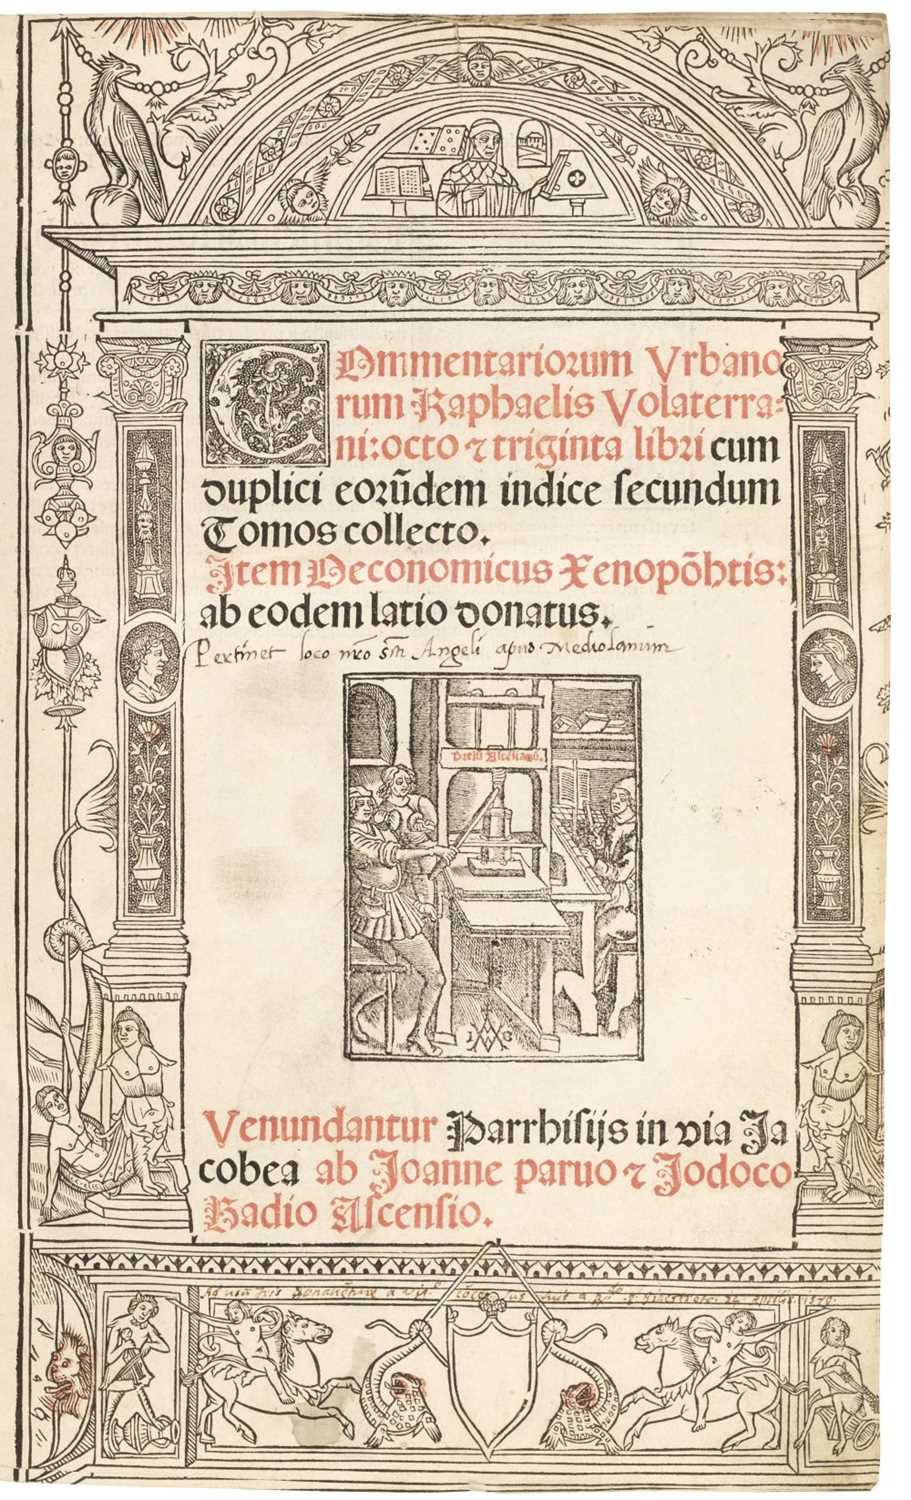 COmmentariorum Vrbano
rum Raphaelis Volaterra-
ni: octo ⁊ triginta libri cum
duplici eorũdem indice secundum
Tomos collecto.
Item Oeconomicus Xenopõhtis:
ab eodem latio donatus.
Pertinet loco nr̃o Sti Angeli apud Mediolanum
Prelũ Ascẽsianũ.
Venundantur Parrhisijs in via Ja
cobea ab Joanne paruo ⁊ Jodoco
Badio Ascensio.
Ad usũ